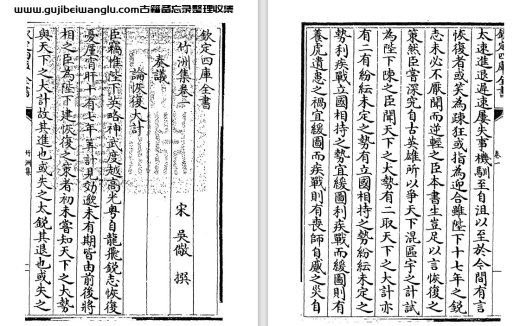 www.gujibeiwanglu.com古籍备忘录整理收集
欽定四庫全書
竹洲集卷一
宋 吳儆 撰
奏議
論恢復大計
臣竊惟陛下英略神武度越高光粤自龍飛銳志恢復
憂虛宵旰十有七年其計見効邈未有期皆由前後將
相之臣為陛下建恢復之策者初未嘗知天下之大勢
與天下之大計故其進也或失之太銳其退也或失之
竹洲集
欽定四庫全書
卷一
太速進退遲速屢失事機馴至自沮以至於今間有言
恢復者或笑為疎狂或指為迎合雖陛下十七年之銳
志未必不厭聞而逆輕之臣本書生豈足以言恢復之
策然臣嘗深究自古英雄所以爭天下混區宇之計試
為陛下陳之臣聞天下之大勢有二取天下之大計亦
有二有紛紜未定之勢有立國相持之勢紛紜未定之
勢利疾戰立國相持之勢宜緩圖利疾戰而緩圖則有
養虎遺患之禍宜緩圖而疾戰則有喪師自蹙之災自